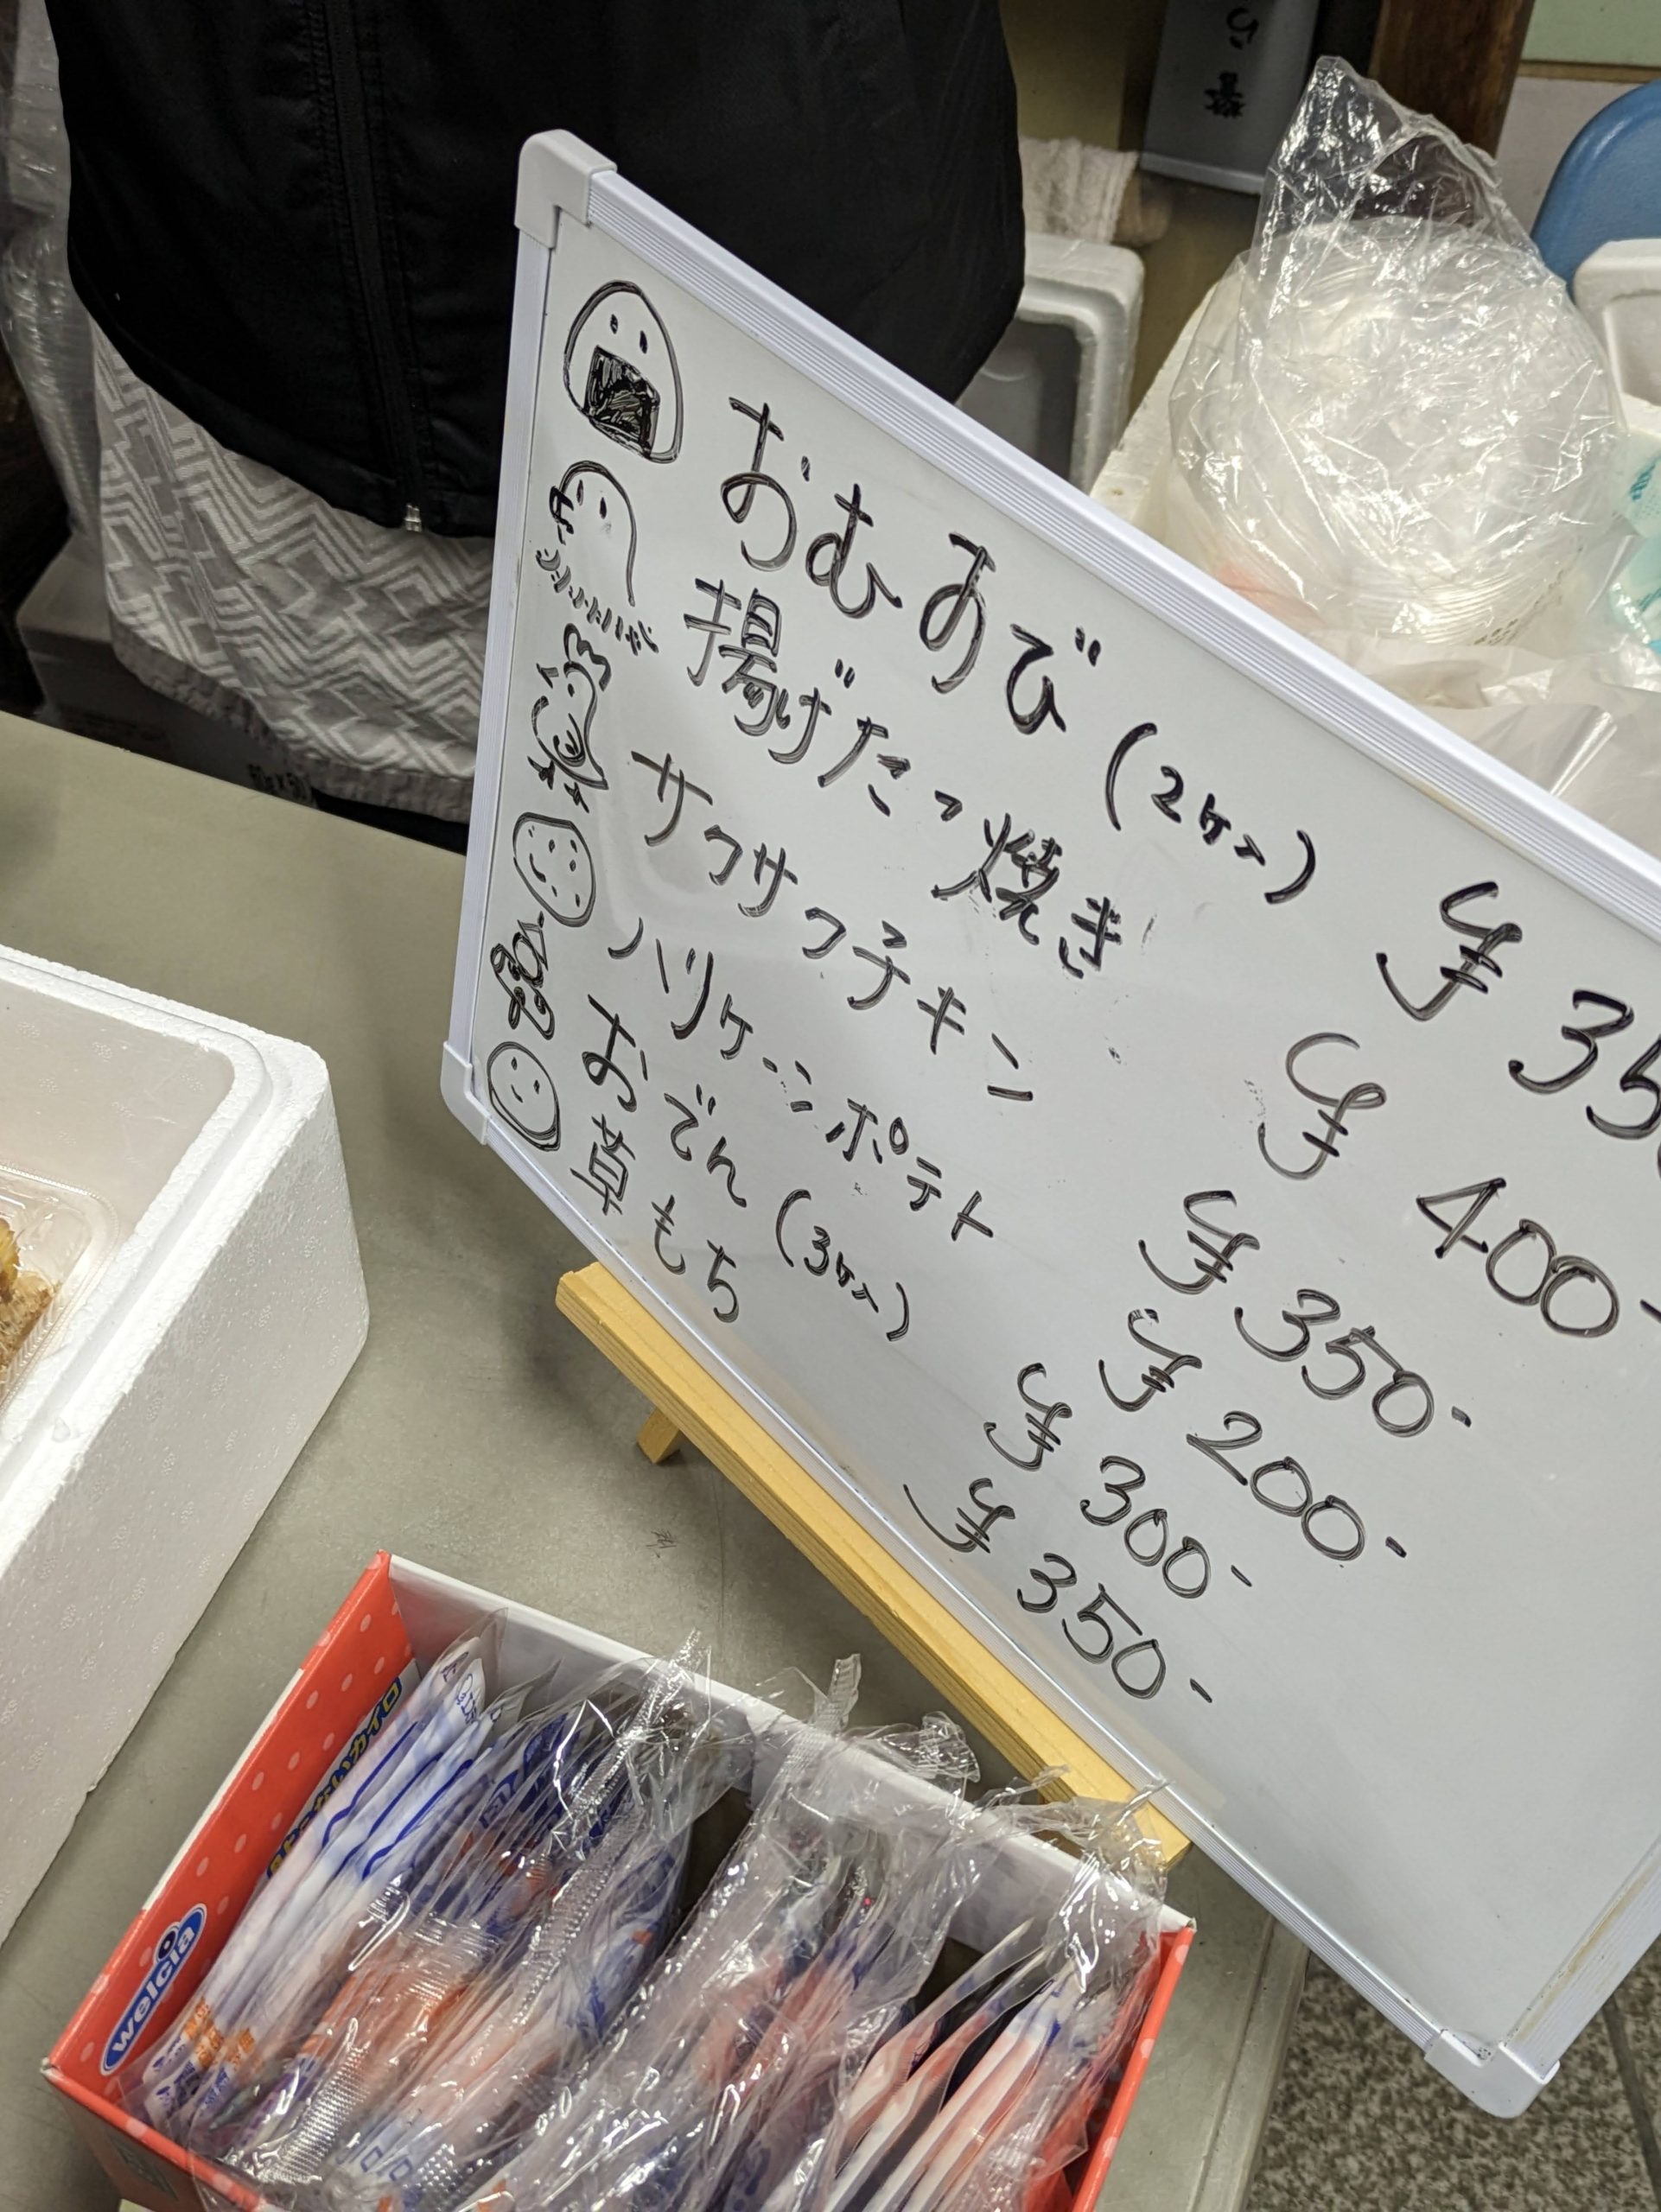 おむすび (2ケ入) ¥350
揚げたこ焼き ¥400-
サクサクチキン ¥350-
ハリケーンポテト ¥200-
おでん (3ケ入) ¥300-
草もち ¥350-
welcia